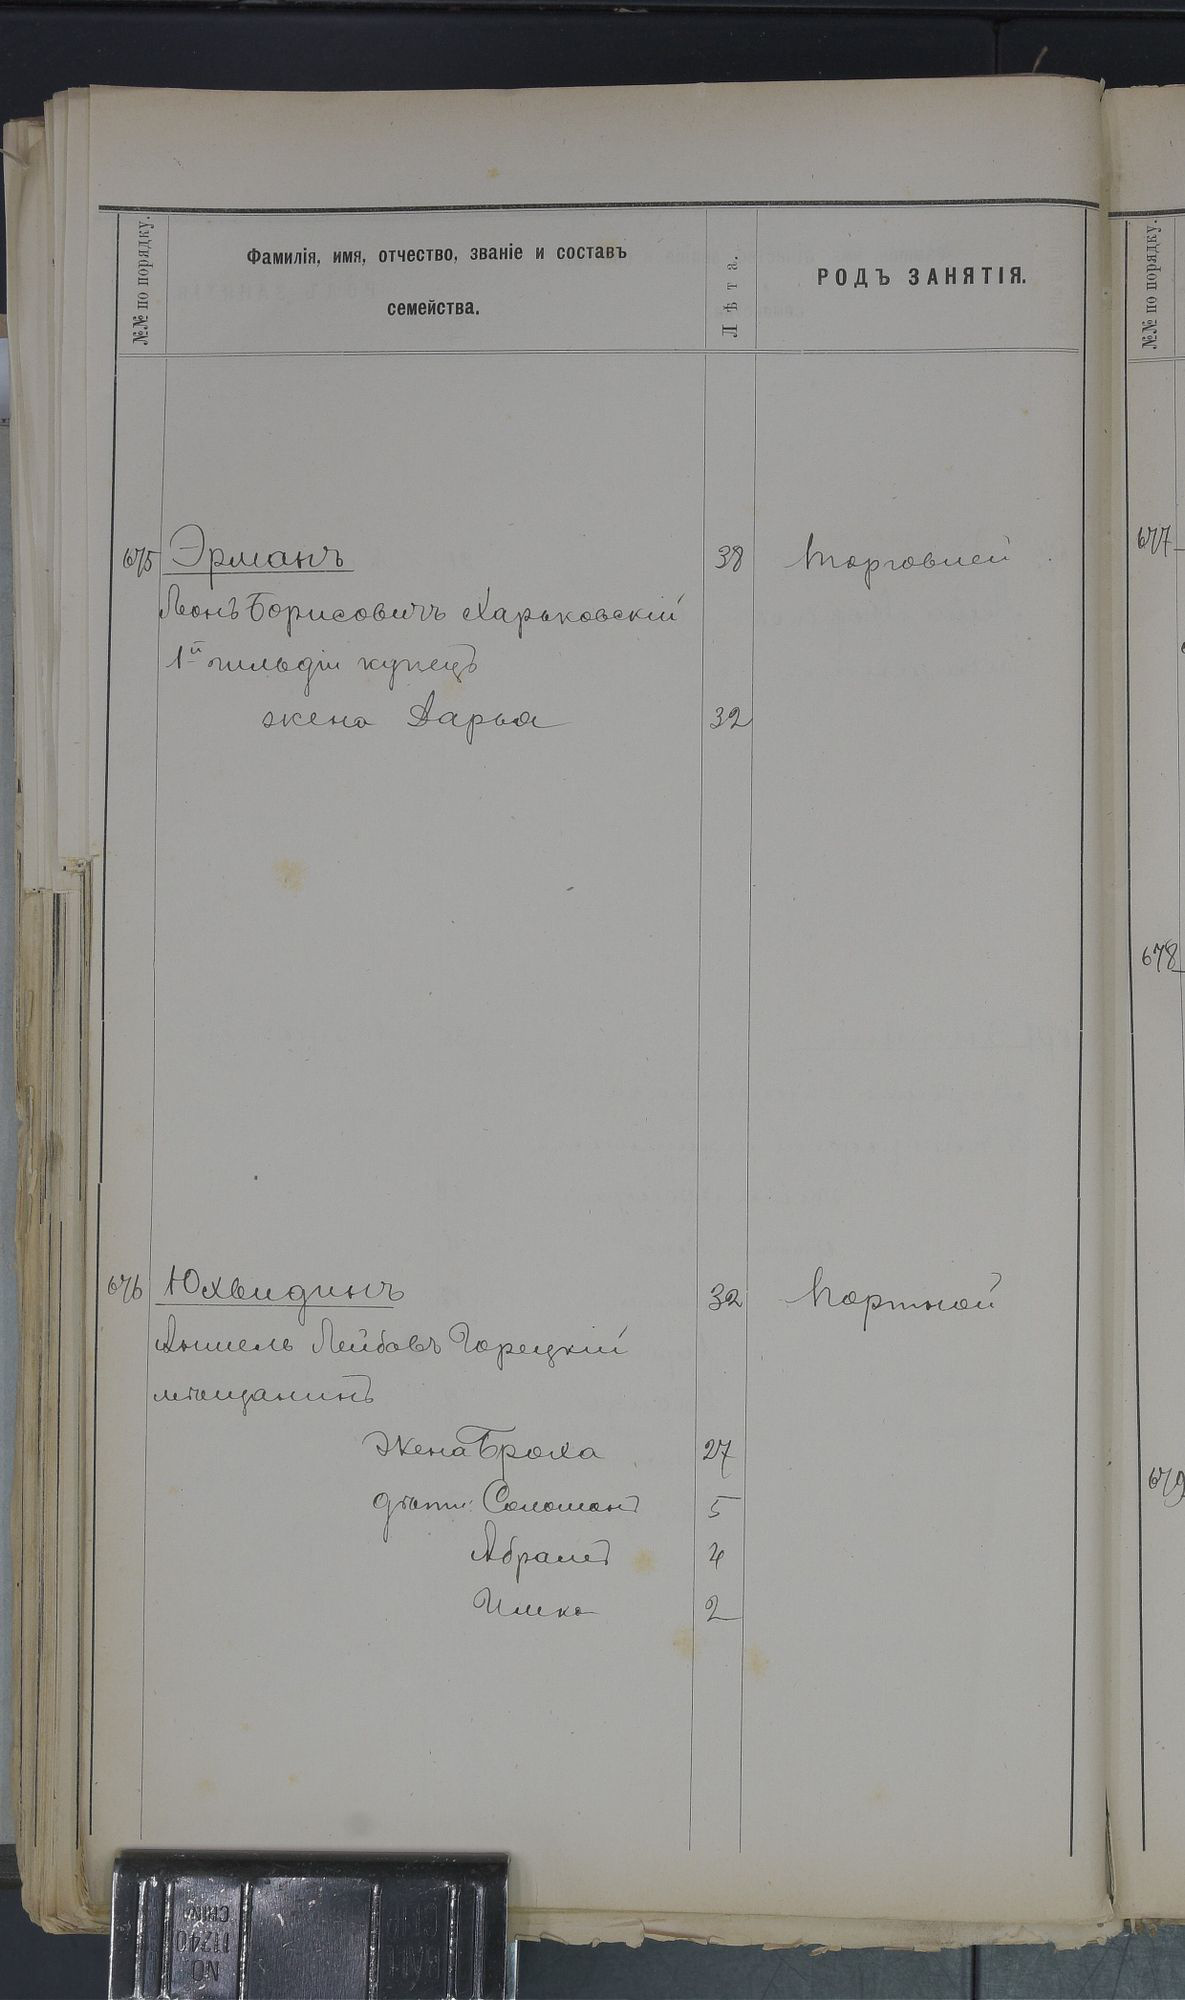 №№ по порядку.
Фамилія, имя, отчество, званіе и составъ
семейства.
Лѣта.
РОДЪ ЗАНЯТІЯ.
№№ по порядку.
675 Эрманъ 38 Торговлей
Леонъ Борисовичъ Харьковскій
1й гильдіи купецъ
жена Дарья 32
676 Юхвидинъ 32 Портной
Аншель Лейбовъ Горецкій
мѣщанинъ
Жена Броха 27
дѣти: Соломонъ 5
Абрамъ 4
Илика 2
677
678
679
CHINA
11240
NO.